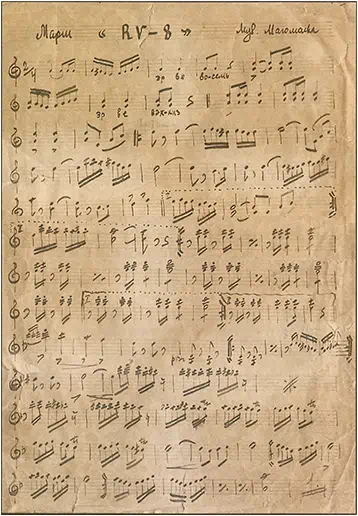 Марш « RV-8 » Муз. Магомаева
эр ве во-семь
эр ве